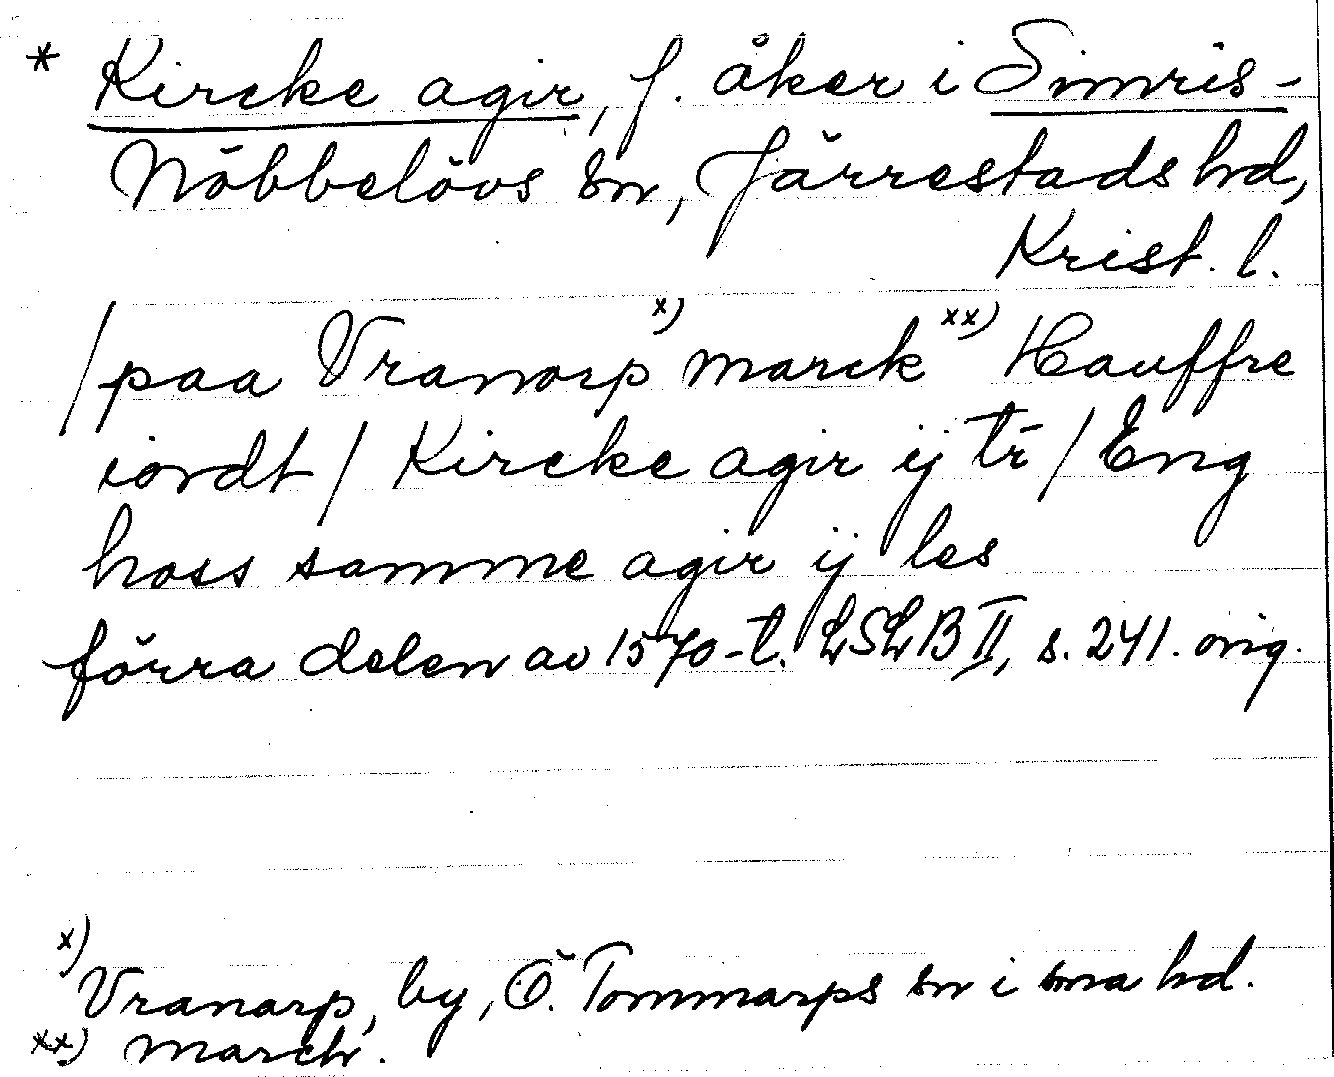 * Kircke agir, f. åker i Simris-
Nöbbelövs sn, Järrestads hd,
Krist. l.
/paa Vranorp x) marck xx) Hauffre
iordt / Kircke agir ij tr̄ / Eng
hoss samme agir ij les
förra delen av 1570-t. LSLB II, s. 241. orig.
x) Vranarp, by, Ö. Tommarps sn i sma hd.
xx) march.